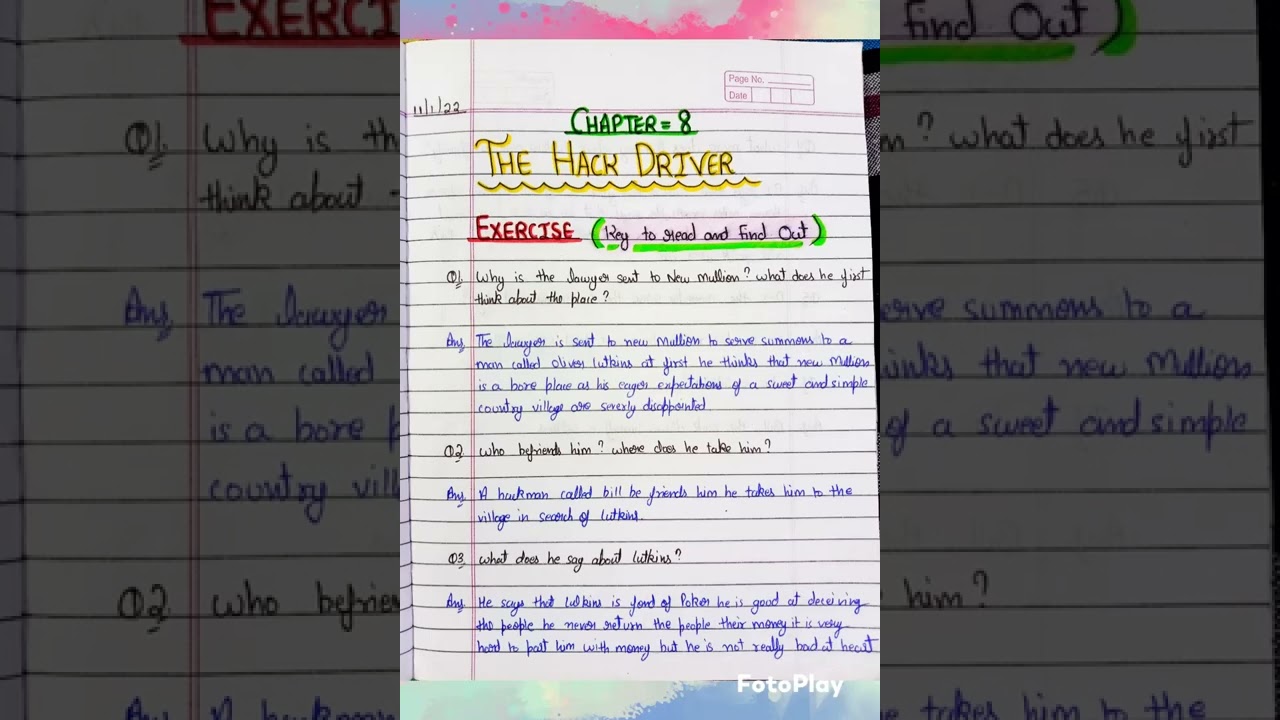 Page No.
Date
11/1/22
CHAPTER = 8
THE HACK DRIVER
EXERCISE (Key to read and find Out)
Q1. Why is the lawyer sent to New Mullion? what does he first
think about the place?
Ans, The lawyer is sent to new Mullion to serve summons to a
man called oliver lutkins at first he thinks that new Mullion
is a bore place as his eager expectations of a sweet and simple
country village are severly disappointed
Q2 who befriends him? where does he take him?
Ans, A hackman called bill be friends him he takes him to the
village in search of lutkins.
Q3 what does he say about lutkins?
Ans, He says that lutkins is fond of Poker he is good at deceiving
the people he never return the people their money it is very
hard to part him with money but he is not really bad at heart
FotoPlay